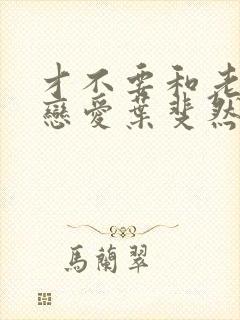 才不要和老
戀愛葉斐然
馬蘭翠